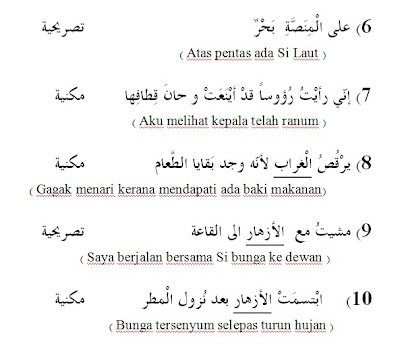 6) على الْمِنَصَّةِ بَحْرٌ تصريحية
( Atas pentas ada Si Laut )
7) إنّي رأيْتُ رُؤوساً قدْ أيْنَعَتْ و حانَ قِطافِها مكنية
( Aku melihat kepala telah ranum )
8) يرْقُصُ الْغراب لأنّه وجد بَقايا الطَّعام مكنية
( Gagak menari kerana mendapati ada baki makanan)
9) مشيتُ مع الأزهار الى القاعة تصريحية
( Saya berjalan bersama Si bunga ke dewan )
10) ابْتسمَتْ الأزهار بعد نُزول الْمطر مكنية
( Bunga tersenyum selepas turun hujan )